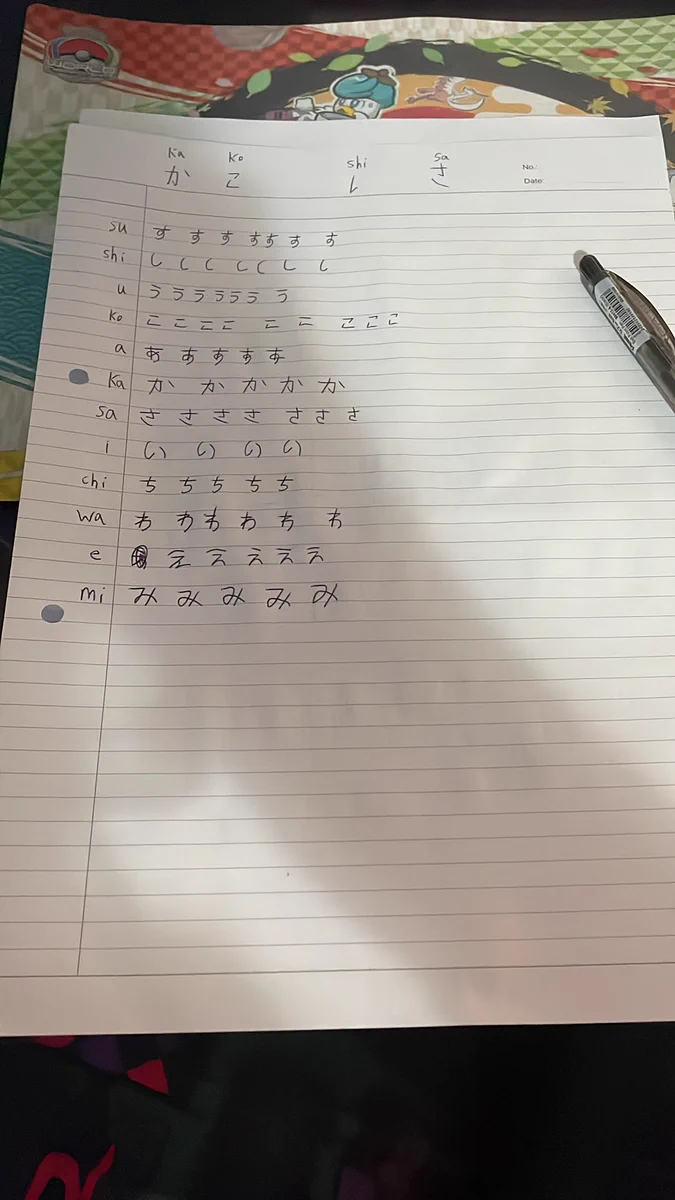 WORLD
Ka Ko shi sa
か こ し さ
No.:
Date:
su す す す す す す す
shi し し し し し し し
u う う う う う う う
Ko こ こ こ こ こ こ こ こ こ
a あ あ あ あ あ
Ka か か か か か
sa さ さ さ さ さ さ さ
i い い い い
chi ち ち ち ち ち
wa わ わ わ わ わ わ
e え え え え え
mi み み み み み